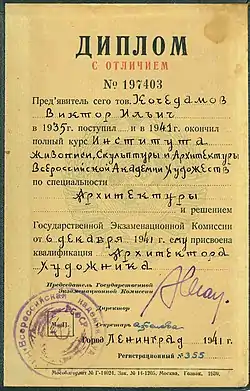 ДИПЛОМ
С ОТЛИЧИЕМ
№ 197403
Пред'явитель сего тов. Кочедамов
Виктор Ильич
в 1935 г. поступил и в 1941 г. окончил
полный курс Института
Живописи, Скульптуры и Архитектуры
Всероссийской Академии Художеств
по специальности
Архитектуры
и решением
Государственной Экзаменационной Комиссии
от 6 декабря 1941 г. ему присвоена
квалификация Архитектора
Художника
Председатель Государственной
Экзаменационной Комиссии
Директор
Секретарь
Город Ленинград 1941 г.
Регистрационный № 355
М. П.
Всероссийская Академия